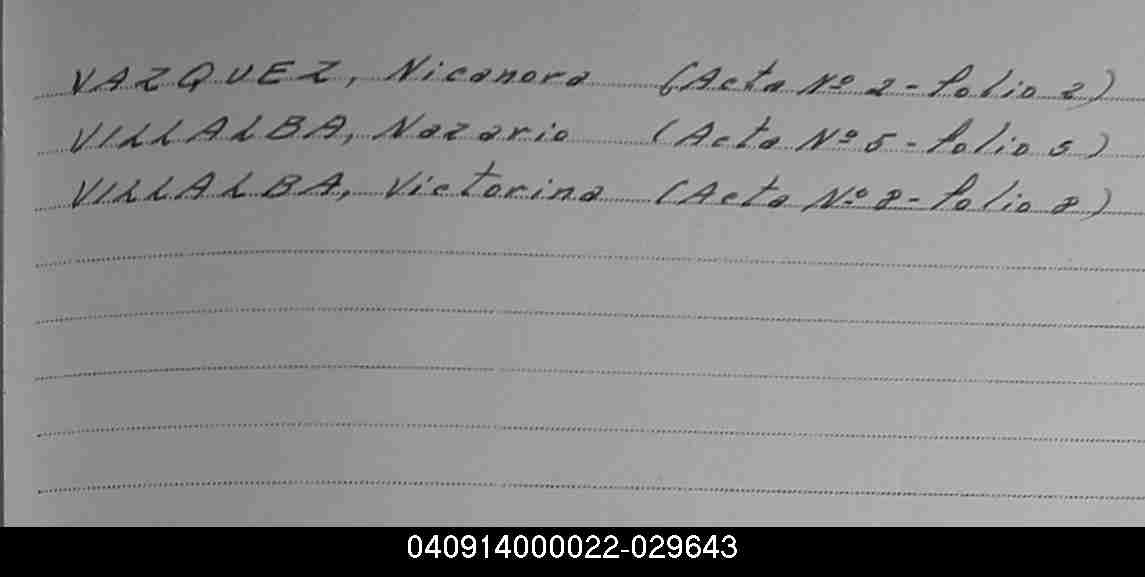 VAZQUEZ, Nicanora (Acta Nº 2 - folio 2)
VILLALBA, Nazario (Acta Nº 5 - folio 5)
VILLALBA, Victorina (Acta Nº 8 - folio 8)
040914000022-029643